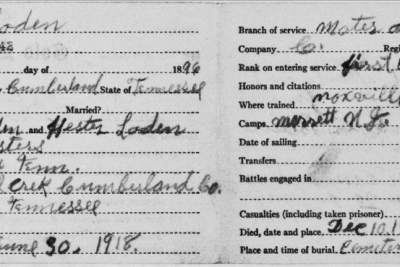 Loden
42
day of 1896
Cumberland State of Tennessee
Married?
and Hester Loden
sters
Tenn.
Crek Cumberland Co.
Tennessee
June 30. 1918.
Branch of service
Company C. Reg
Rank on entering service first
Honors and citations
Where trained
Camps, Merrett N.J.
Date of sailing
Transfers
Battles engaged in
Casualties (including taken prisoner)
Died, date and place. Dec 10, 1
Place and time of burial. Cemeter